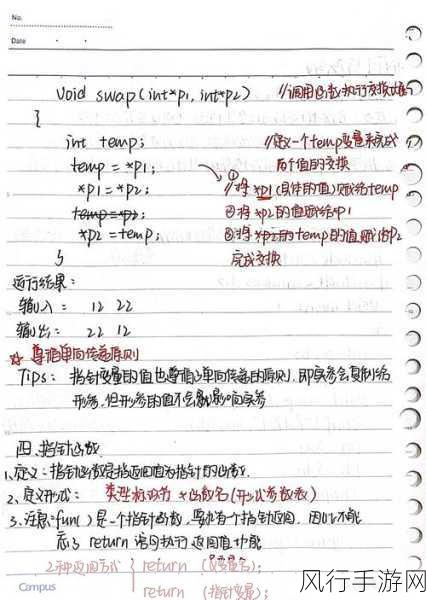 No.
Date
void swap(int*p1, int*p2) //调用函数执行交换
{
int temp; //定义一个temp变量来完成
两个值的交换
temp = *p1; ①
//将*p1(具体的值)赋给temp
*p1 = *p2; ②将*p2的值赋给*p1
temp=*p2;
*p2 = temp; ③将temp的值赋给*p2
} 完成交换
运行结果:
输入: 12 22
输出: 22 12
☆ 遵循单向传递原则
Tips: 指针变量的值也遵循单向传递的原则,即实参会复制给
形参,但形参的值不会影响实参
四.指针函数
1、定义:指针函数是指返回值为指针的函数.
2、定义形式: 类型标识符 *函数名(形式参数表)
3、注意:fun()是一个指针函数,要求有个指针返回,因此不能
return语句执行返回值功能
2种返回方式 { return (&变量名);
return (指针变量);
Campus
风行手游网